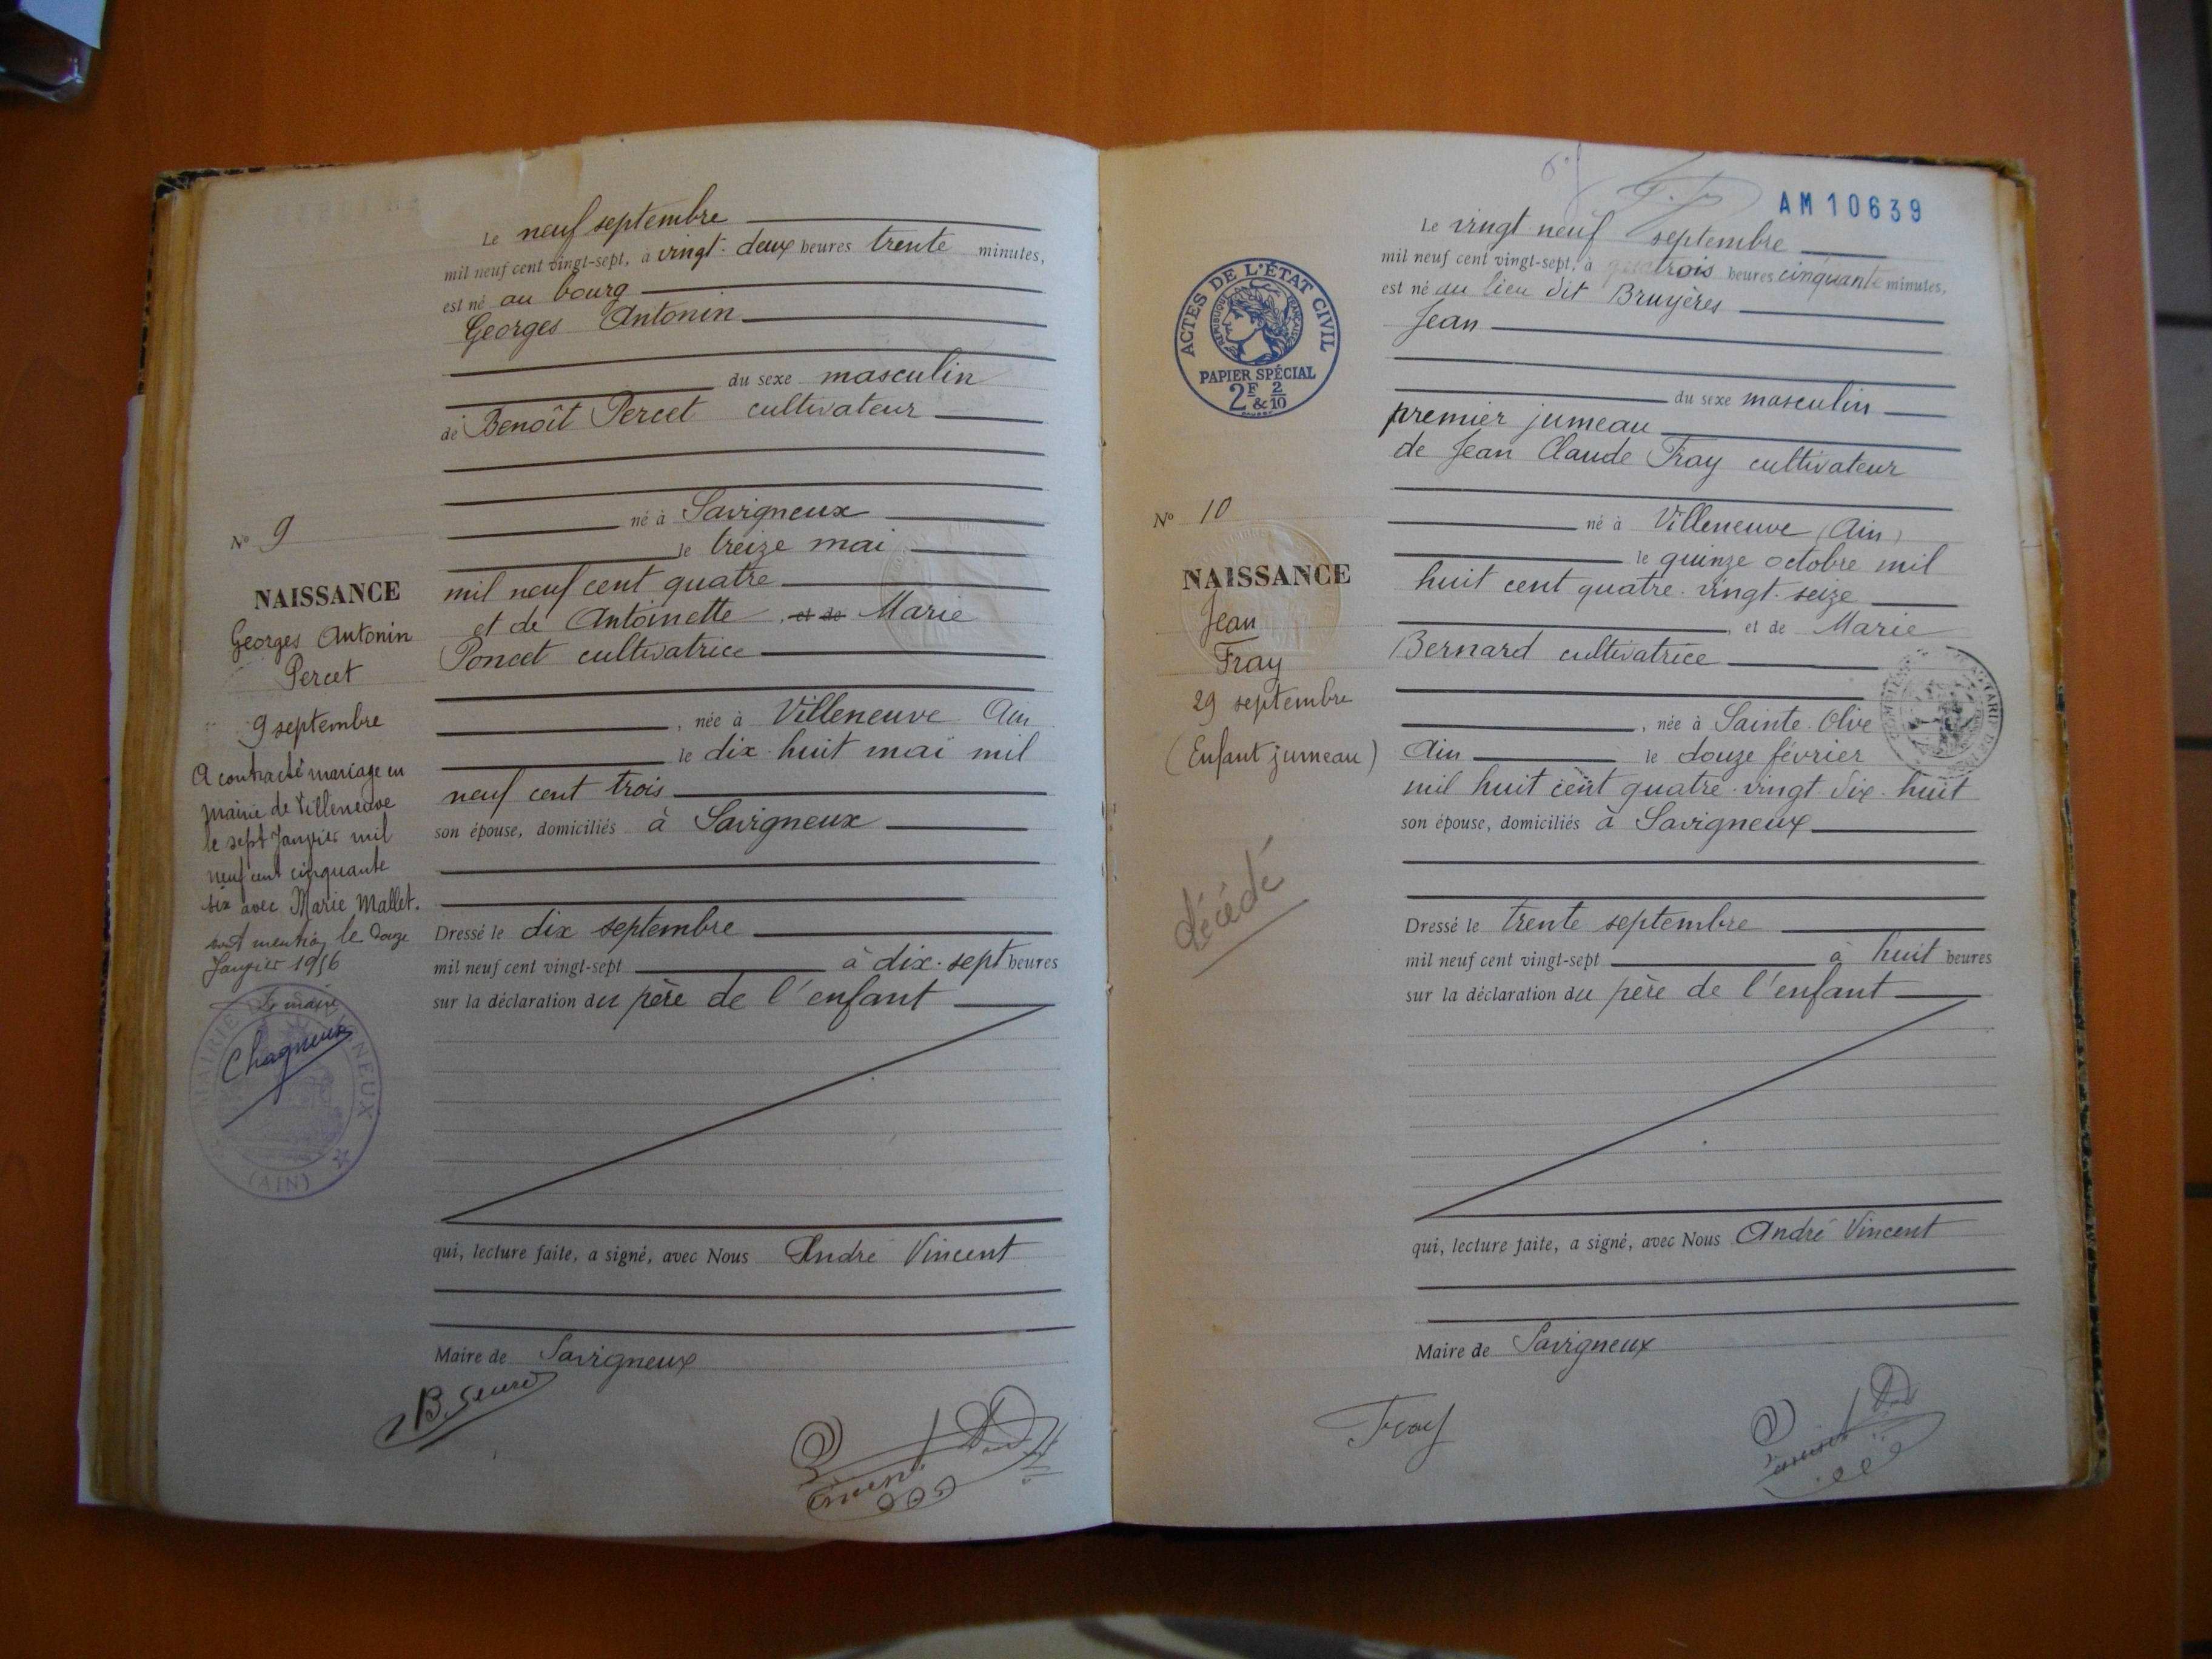 Le neuf septembre
mil neuf cent vingt-sept, à vingt-deux heures trente minutes,
est né au bourg
Georges Antonin
du sexe masculin
de Benoît Percet cultivateur
né à Savigneux
le treize mai
mil neuf cent quatre
et de Antoinette, et de Marie
Poncet cultivatrice
, née à Villeneuve Ain
le dix huit mai mil
neuf cent trois
son épouse, domiciliés à Savigneux
Dressé le dix septembre
mil neuf cent vingt-sept à dix-sept heures
sur la déclaration du père de l'enfant
qui, lecture faite, a signé, avec Nous André Vincent
Maire de Savigneux
Vincent
No 9
NAISSANCE
Georges Antonin
Percet
9 septembre
A contracté mariage en
mairie de Villeneuve
le sept Janvier mil
neuf cent cinquante
six avec Marie Mallet.
mention le douze
Janvier 1956
Le maire
Chagneux
MAIRIE
NEUX
(AIN)
AM 10639
Le vingt neuf septembre
mil neuf cent vingt-sept, à trois heures cinquante minutes,
est né au lieu dit Bruyères
Jean
du sexe masculin
premier jumeau
de Jean Claude Fray cultivateur
né à Villeneuve (Ain)
le quinze octobre mil
huit cent quatre-vingt-seize
, et de Marie
Bernard cultivatrice
, née à Sainte Olive
Ain le douze février
mil huit cent quatre-vingt dix-huit
son épouse, domiciliés à Savigneux
Dressé le trente septembre
mil neuf cent vingt-sept à huit heures
sur la déclaration du père de l'enfant
qui, lecture faite, a signé, avec Nous André Vincent
Maire de Savigneux
Fray
ACTES DE L'ÉTAT CIVIL
RÉPUBLIQUE FRANÇAISE
PAPIER SPÉCIAL
2F & 2/10
No 10
NAISSANCE
Jean
Fray
29 septembre
(Enfant jumeau)
décédé